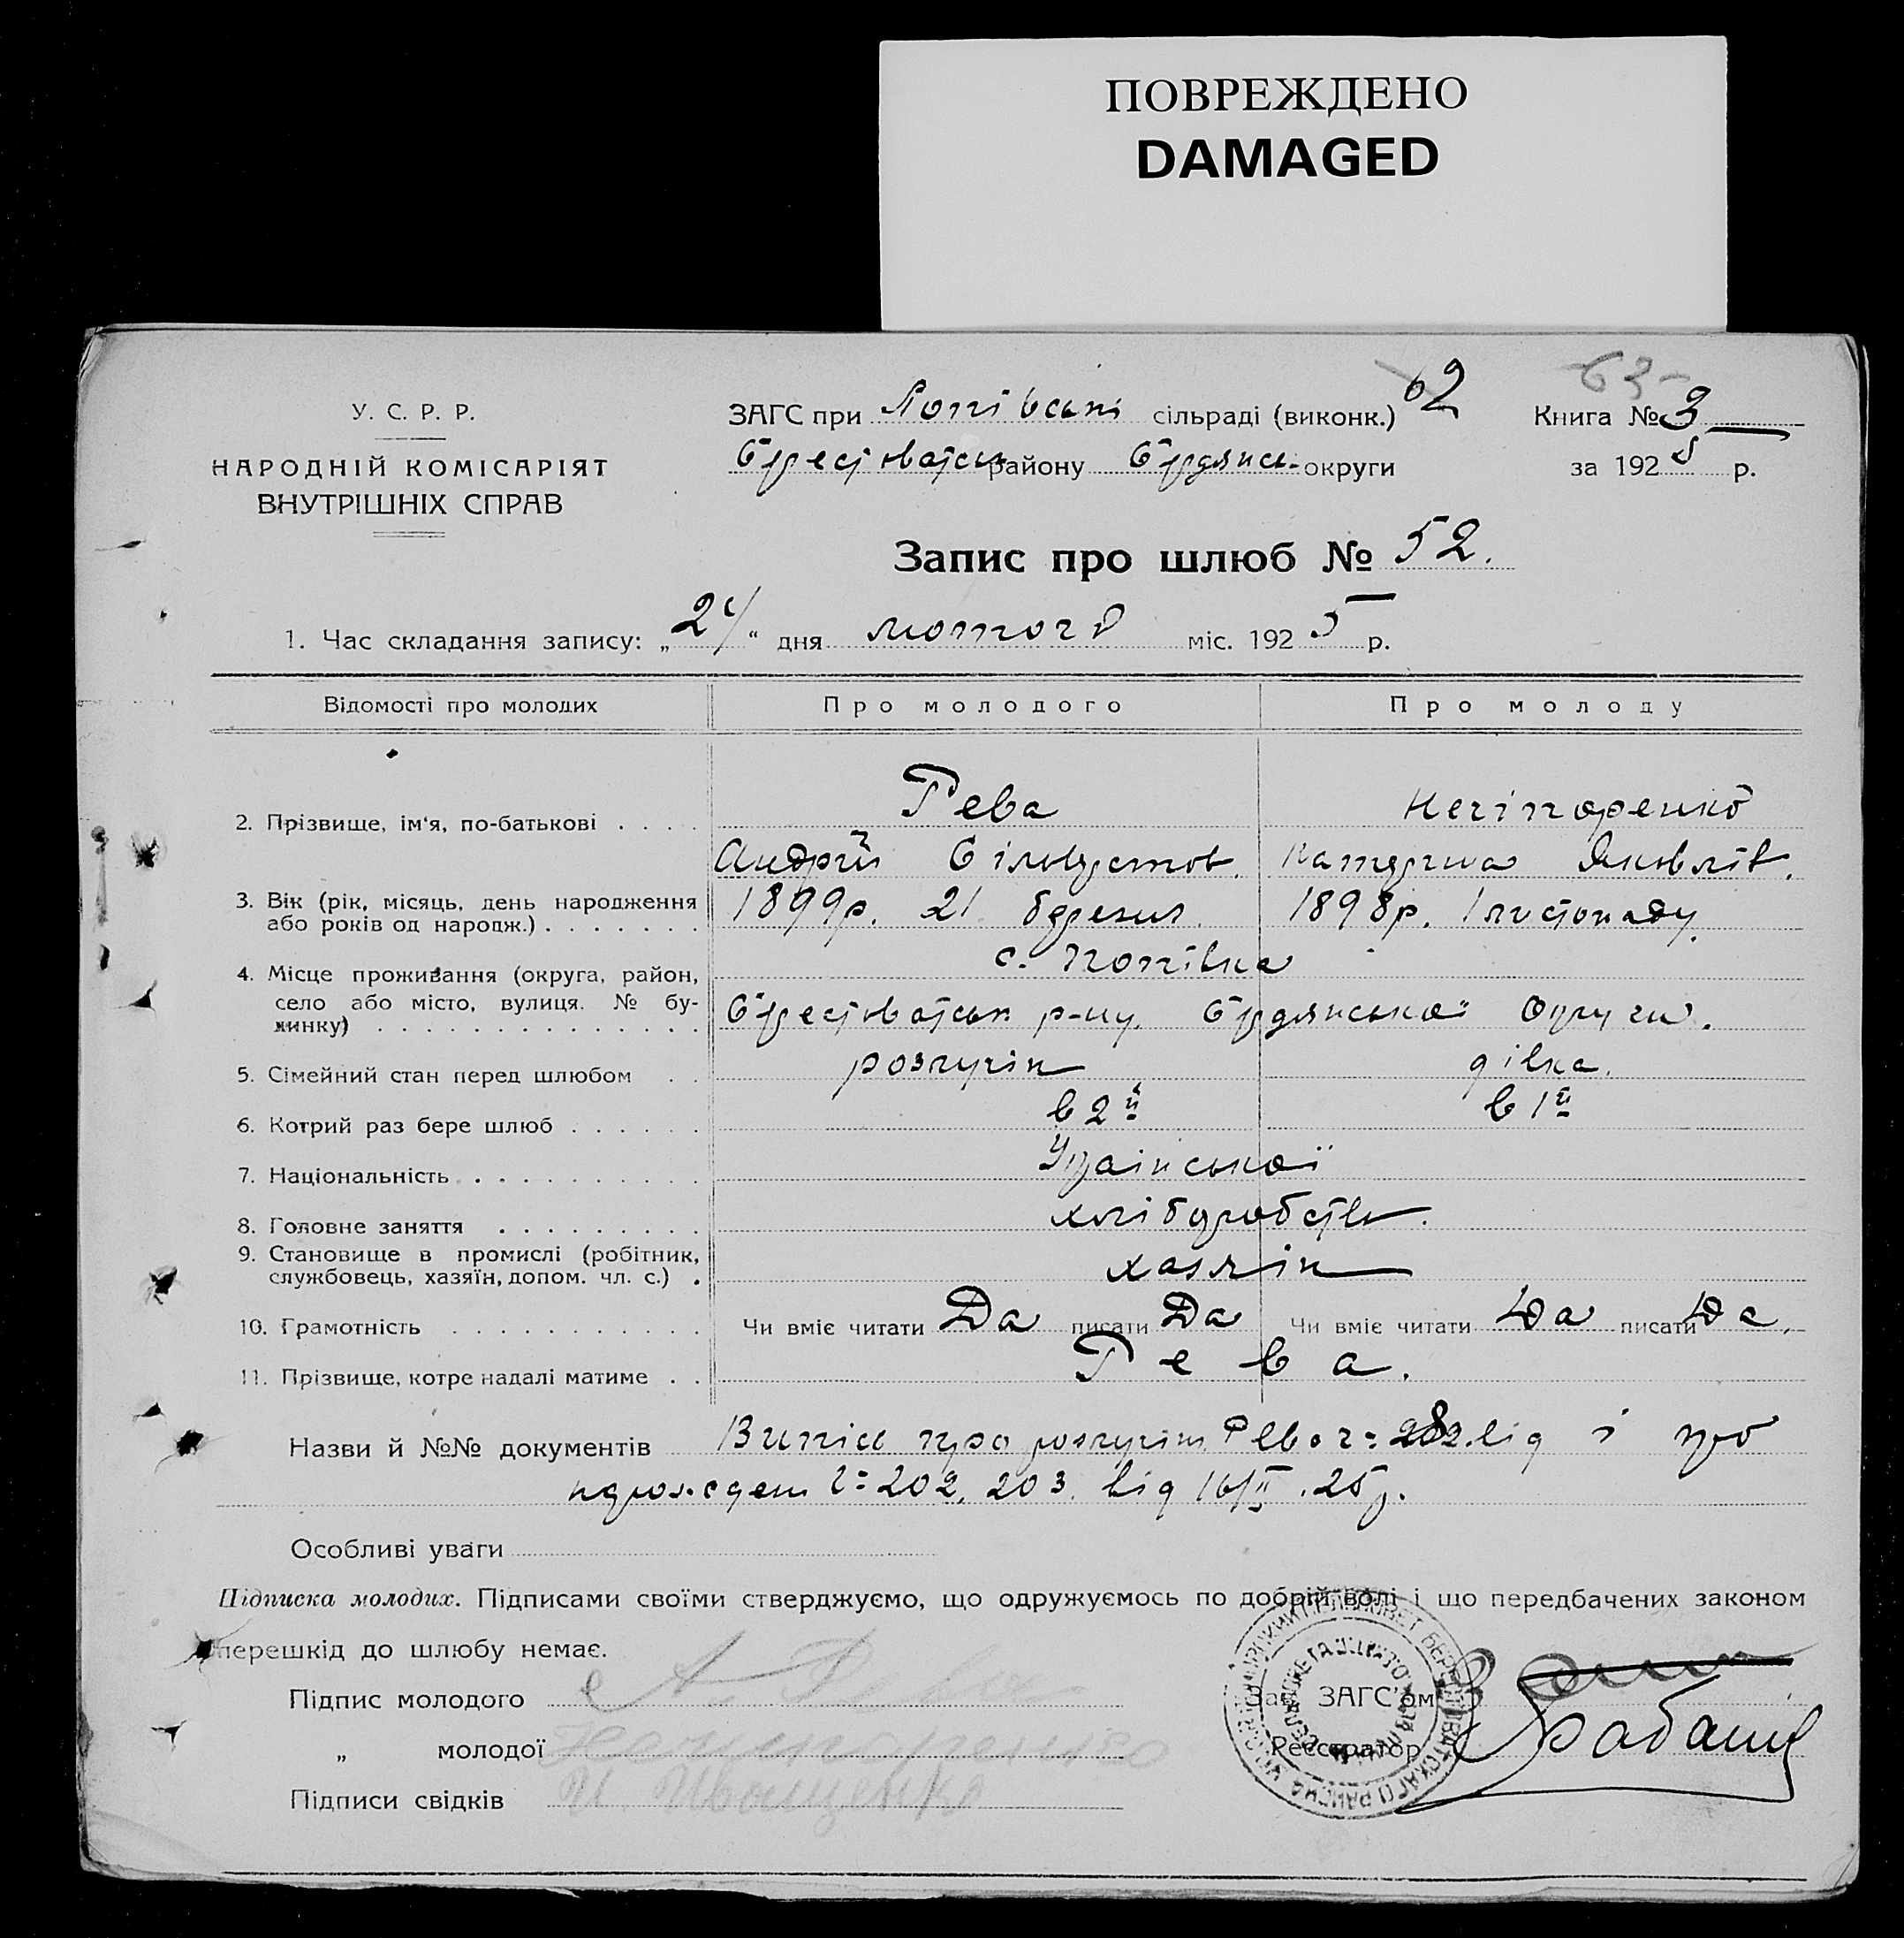 ПОВРЕЖДЕНО
DAMAGED
62 63
У. С. Р. Р.
НАРОДНІЙ КОМІСАРІЯТ
ВНУТРІШНІХ СПРАВ
ЗАГС при Попівські сільраді (виконк.)
Берестоватськ району Бердянськ округи
Книга № 3
за 1925 р.
Запис про шлюб № 52.
1. Час складання запису: „24“ дня лютого міс. 1925 р.
Відомості про молодих Про молодого Про молоду
2. Прізвище, ім'я, по-батькові . . . . Рева Нечіпоренко
Андрій Сільвестов. Катерина Яковлів.
3. Вік (рік, місяць, день народження або років од народж.) . . . . . . . 1899р. 21 березня. 1898р. 1 листопаду.
4. Місце проживання (округа, район, село або місто, вулиця. № будинку) . . . . . . . . . . . . . . с. Попівка
Берестоватськ р-ну. Бердянської Округи.
5. Сімейний стан перед шлюбом . . розлучін дівка.
6. Котрий раз бере шлюб . . . . . . в 2й в 1й
7. Національність . . . . . . . . . . Української
8. Головне заняття . . . . . . . . . хліборобств.
9. Становище в промислі (робітник, службовець, хазяїн, допом. чл. с.) . хазяін
10. Грамотність . . . . . . . . . . . Чи вміє читати Да писати Да Чи вміє читати Да писати Да.
11. Прізвище, котре надалі матиме . . Рева.
Назви й №№ документів Випіси про розлучін Рева ч= 282. від і про
ч= 202, 203. від 16/II .25р.
Особливі уваги
Підписка молодих. Підписами своїми стверджуємо, що одружуємось по добрій волі і що передбачених законом
перешкід до шлюбу немає.
Підпис молодого А Рева
„ молодої
Підписи свідків И. Иващенко
Зав. ЗАГС'ом
Реєстратор